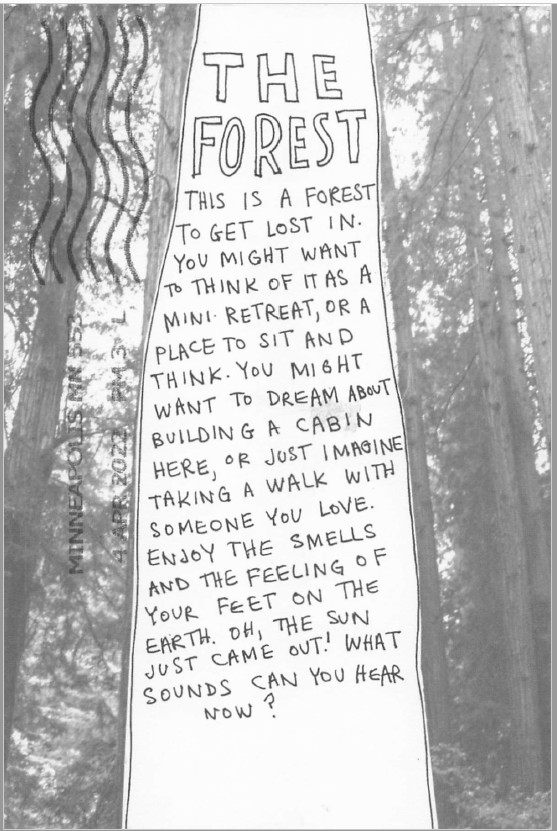 THE
FOREST
THIS IS A FOREST
TO GET LOST IN.
YOU MIGHT WANT
TO THINK OF IT AS A
MINI RETREAT, OR A
PLACE TO SIT AND
THINK. YOU MIGHT
WANT TO DREAM ABOUT
BUILDING A CABIN
HERE, OR JUST IMAGINE
TAKING A WALK WITH
SOMEONE YOU LOVE.
ENJOY THE SMELLS
AND THE FEELING OF
YOUR FEET ON THE
EARTH. OH, THE SUN
JUST CAME OUT! WHAT
SOUNDS CAN YOU HEAR
NOW?
MINNEAPOLIS MN 553
4 APR 2022 PM 3 L